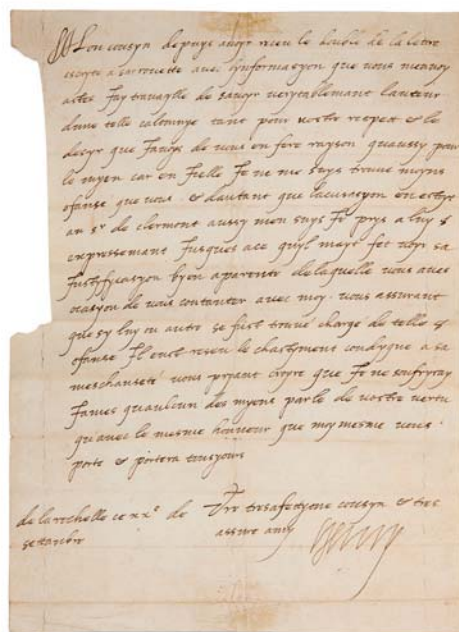 Mon cousyn depuys avoyr receu le double de la letre
escryte a servette avec lynformasyon que vous menvoy
astes Jay travaylle de savoyr verytablemant lauteur
dune telle calomnye tant pour vostre respect & le
desyr que Javoys de vous en fere rayson quaussy pour
le myen car en Jcelle Je ne me suys trouvé moyns
ofansé que vous . & dautant que lacusasyon en estoyt
au sr de clermont aussy men suys Je prys a luy
expressemant Jusques a ce quyl mayt fet voyr sa
Justyfycasyon byen aparente de laquelle vous aves
ocasyon de vous contanter avec moy . vous assurant
que sy luy ou autre se fust trouvé chargé de telle
ofanse Il eust receu le chastyment condygne a sa
meschanseté vous pryant croyre que Je ne soufryray
James quaulcun des myens parle de vostre vertu
quavec le mesme honneur que moy mesme vous
porte & portera tousyours
de la rochelle ce xxe de
setambre
Vre tresafectyonne cousyn & tres
assure amy
Henry